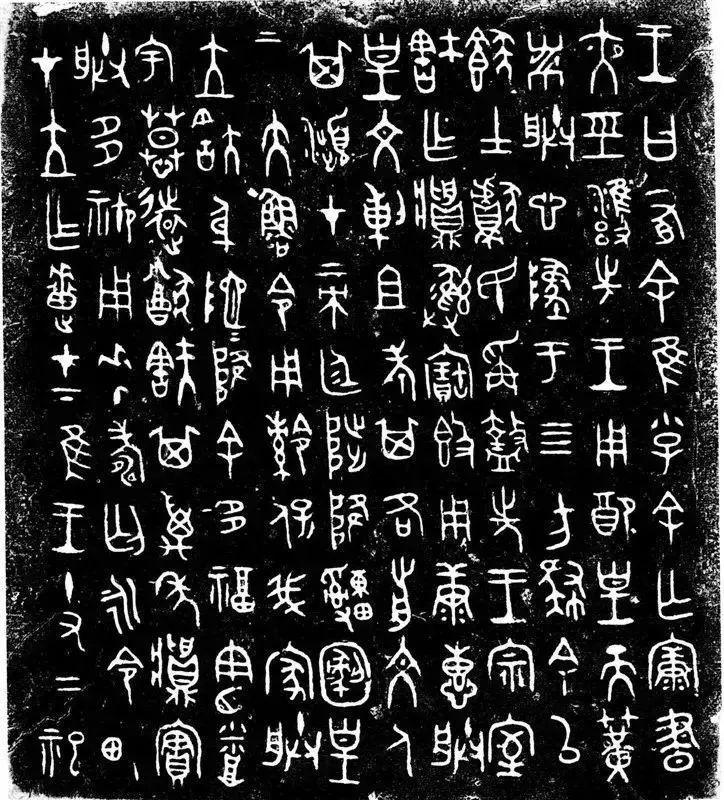 王曰有余隹小子余亡康晝
夜巠雍先王用配皇天簧
黹朕心墜于四方肆余以
𩛥士獻民爯盩先王宗室
㝬乍𪔉彝寶簋用康惠朕
皇文剌且考其各前文人
其瀕才帝廷陟降皇
帝大魯令用保我家朕
立㝬身阤阤降余多福憲
宇慕遠猷㝬其萬年𪔉實
朕多禦用𠦪壽匄永令畯
才立乍疐才下隹王十又二祀